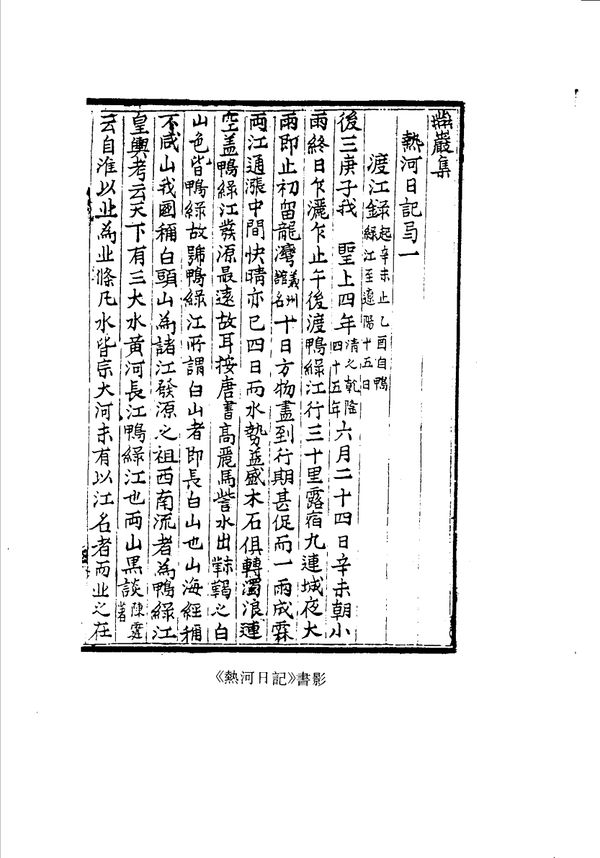 燕巖集
熱河日記弓一
渡江録起辛未止乙酉自鴨緑江至遼陽十五日
後三庚子我 聖上四年清之乾隆四十五年六月二十四日辛未朝小
雨終日乍灑乍止午後渡鴨緑江行三十里露宿九連城夜大
雨即止初留龍灣義州舘名十日方物盡到行期甚促而一雨成霖
兩江通漲中間快晴亦已四日而水勢益盛木石俱轉濁浪連
空盖鴨緑江發源最遠故耳按唐書高麗馬訾水出靺鞨之白
山色皆鴨緑故號鴨緑江所謂白山者即長白山也山海經稱
不咸山我國稱白頭山為諸江發源之祖西南流者為鴨緑江
皇輿考云天下有三大水黄河長江鴨緑江也兩山墨談陳霆著
云自淮以北為北條凡水皆宗大河未有以江名者而北之在
《熱河日記》書影